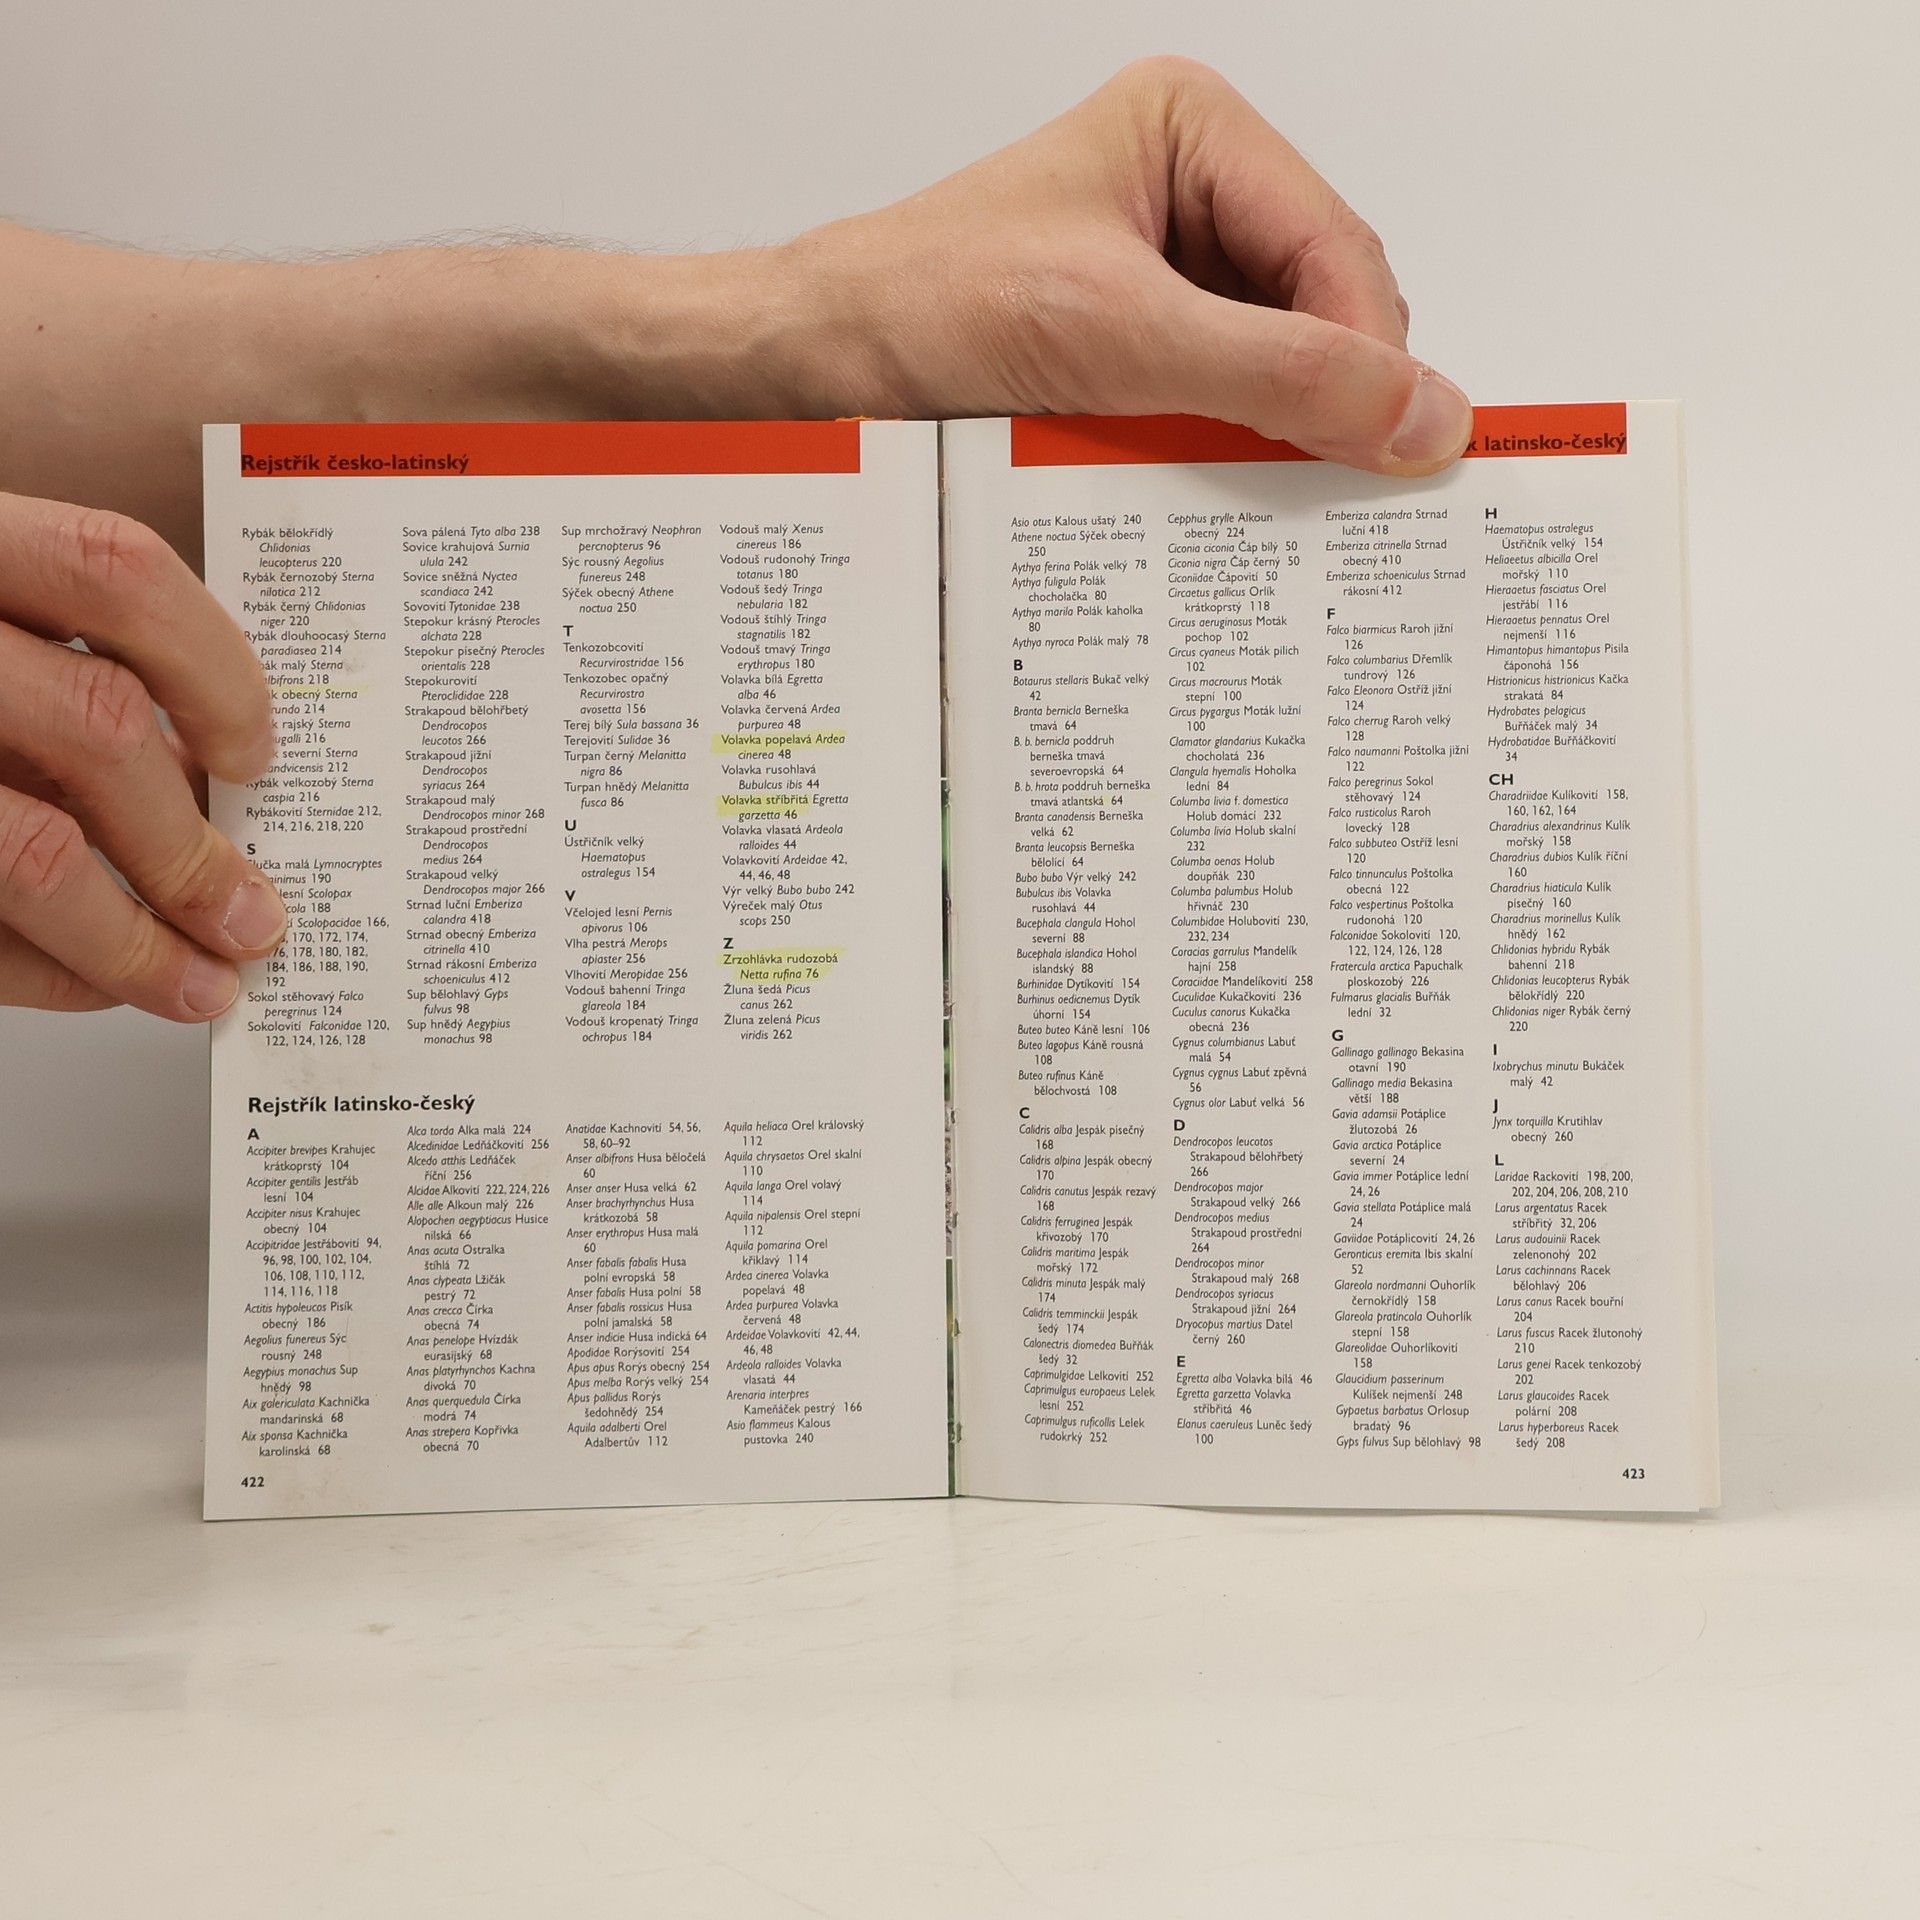 Rejstřík česko-latinský
Rybák bělokřídlý
Chlidonias
leucopterus 220
Rybák černozobý Sterna
nilotica 212
Rybák černý Chlidonias
niger 220
Rybák dlouhoocasý Sterna
paradisea 214
malý Sterna
albifrons 218
obecný Sterna
214
rajský Sterna
216
severní Sterna
212
Rybák velkozobý Sterna
caspia 216
Rybákovití Sternidae 212,
214, 216, 218, 220
S
Slučka malá Lymnocryptes
minimus 190
lesní Scolopax
188
Scolopacidae 166,
170, 172, 174,
176, 178, 180, 182,
184, 186, 188, 190,
192
Sokol stěhovavý Falco
peregrinus 124
Sokolovití Falconidae 120,
122, 124, 126, 128
Sova pálená Tyto alba 238
Sovice krahujová Surnia
ulula 242
Sovice sněžná Nyctea
scandiaca 242
Sovovití Tytonidae 238
Stepokur krásný Pterocles
alchata 228
Stepokur písečný Pterocles
orientalis 228
Stepokurovití
Pteroclididae 228
Strakapoud bělohřbetý
Dendrocopos
leucotos 266
Strakapoud jižní
Dendrocopos
syriacus 264
Strakapoud malý
Dendrocopos minor 268
Strakapoud prostřední
Dendrocopos
medius 264
Strakapoud velký
Dendrocopos major 266
Strnad luční Emberiza
calandra 418
Strnad obecný Emberiza
citrinella 410
Strnad rákosní Emberiza
schoeniculus 412
Sup bělohlavý Gyps
fulvus 98
Sup hnědý Aegypius
monachus 98
Sup mrchožravý Neophron
percnopterus 96
Sýc rousný Aegolius
funereus 248
Sýček obecný Athene
noctua 250
T
Tenkozobcovití
Recurvirostridae 156
Tenkozobec opačný
Recurvirostra
avosetta 156
Terej bílý Sula bassana 36
Terejovití Sulidae 36
Turpan černý Melanitta
nigra 86
Turpan hnědý Melanitta
fusca 86
U
Ústřičník velký
Haematopus
ostralegus 154
V
Včelojed lesní Pernis
apivorus 106
Vlha pestrá Merops
apiaster 256
Vlhovití Meropidae 256
Vodouš bahenní Tringa
glareola 184
Vodouš kropenatý Tringa
ochropus 184
Vodouš malý Xenus
cinereus 186
Vodouš rudonohý Tringa
totanus 180
Vodouš šedý Tringa
nebularia 182
Vodouš štíhlý Tringa
stagnatilis 182
Vodouš tmavý Tringa
erythropus 180
Volavka bílá Egretta
alba 46
Volavka červená Ardea
purpurea 48
Volavka popelavá Ardea
cinerea 48
Volavka rusohlavá
Bubulcus ibis 44
Volavka stříbřitá Egretta
garzetta 46
Volavka vlasatá Ardeola
ralloides 44
Volavkovití Ardeidae 42,
44, 46, 48
Výr velký Bubo bubo 242
Výreček malý Otus
scops 250
Z
Zrzohlávka rudozobá
Netta rufina 76
Žluna šedá Picus
canus 262
Žluna zelená Picus
viridis 262
Rejstřík latinsko-český
A
Accipiter brevipes Krahujec
krátkoprstý 104
Accipiter gentilis Jestřáb
lesní 104
Accipiter nisus Krahujec
obecný 104
Accipitridae Jestřábovití 94,
96, 98, 100, 102, 104,
106, 108, 110, 112,
114, 116, 118
Actitis hypoleucos Pisík
obecný 186
Aegolius funereus Sýc
rousný 248
Aegypius monachus Sup
hnědý 98
Aix galericulata Kachnička
mandarinská 68
Aix sponsa Kachnička
karolinská 68
Alca torda Alka malá 224
Alcedinidae Ledňáčkovití 256
Alcedo atthis Ledňáček
říční 256
Alcidae Alkovití 222, 224, 226
Alle alle Alkoun malý 226
Alopochen aegyptiacus Husice
nilská 66
Anas acuta Ostralka
štíhlá 72
Anas clypeata Lžičák
pestrý 72
Anas crecca Čírka
obecná 74
Anas penelope Hvízdák
eurasijský 68
Anas platyrhynchos Kachna
divoká 70
Anas querquedula Čírka
modrá 74
Anas strepera Kopřivka
obecná 70
Anatidae Kachnovití 54, 56,
58, 60–92
Anser albifrons Husa běločelá
60
Anser anser Husa velká 62
Anser brachyrhynchus Husa
krátkozobá 58
Anser erythropus Husa malá
60
Anser fabalis fabalis Husa
polní evropská 58
Anser fabalis Husa polní 58
Anser fabalis rossicus Husa
polní jamalská 58
Anser indicie Husa indická 64
Apodidae Rorýsovití 254
Apus apus Rorýs obecný 254
Apus melba Rorýs velký 254
Apus pallidus Rorýs
šedohnědý 254
Aquila adalberti Orel
Adalbertův 112
Aquila heliaca Orel královský
112
Aquila chrysaetos Orel skalní
110
Aquila langa Orel volavý
114
Aquila nipalensis Orel stepní
112
Aquila pomarina Orel
křiklavý 114
Ardea cinerea Volavka
popelavá 48
Ardea purpurea Volavka
červená 48
Ardeidae Volavkovití 42, 44,
46, 48
Ardeola ralloides Volavka
vlasatá 44
Arenaria interpres
Kameňáček pestrý 166
Asio flammeus Kalous
pustovka 240
422
latinsko-český
Asio otus Kalous ušatý 240
Athene noctua Sýček obecný
250
Aythya ferina Polák velký 78
Aythya fuligula Polák
chocholačka 80
Aythya marila Polák kaholka
80
Aythya nyroca Polák malý 78
B
Botaurus stellaris Bukač velký
42
Branta bernicla Berneška
tmavá 64
B. b. bernicla poddruh
berneška tmavá
severoevropská 64
B. b. hrota poddruh berneška
tmavá atlantská 64
Branta canadensis Berneška
velká 62
Branta leucopsis Berneška
bělolící 64
Bubo bubo Výr velký 242
Bubulcus ibis Volavka
rusohlavá 44
Bucephala clangula Hohol
severní 88
Bucephala islandica Hohol
islandský 88
Burhinidae Dytíkovití 154
Burhinus oedicnemus Dytík
úhorní 154
Buteo buteo Káně lesní 106
Buteo lagopus Káně rousná
108
Buteo rufinus Káně
bělochvostá 108
C
Calidris alba Jespák písečný
168
Calidris alpina Jespák obecný
170
Calidris canutus Jespák rezavý
168
Calidris ferruginea Jespák
křivozobý 170
Calidris maritima Jespák
mořský 172
Calidris minuta Jespák malý
174
Calidris temminckii Jespák
šedý 174
Calonectris diomedea Buřňák
šedý 32
Caprimulgidae Lelkovití 252
Caprimulgus europaeus Lelek
lesní 252
Caprimulgus ruficollis Lelek
rudokrký 252
Cepphus grylle Alkoun
obecný 224
Ciconia ciconia Čáp bílý 50
Ciconia nigra Čáp černý 50
Ciconiidae Čápovití 50
Circaetus gallicus Orlík
krátkoprstý 118
Circus aeruginosus Moták
pochop 102
Circus cyaneus Moták pilich
102
Circus macrourus Moták
stepní 100
Circus pygargus Moták lužní
100
Clamator glandarius Kukačka
chocholatá 236
Clangula hyemalis Hoholka
lední 84
Columba livia f. domestica
Holub domácí 232
Columba livia Holub skalní
232
Columba oenas Holub
doupňák 230
Columba palumbus Holub
hřivnáč 230
Columbidae Holubovití 230,
232, 234
Coracias garrulus Mandelík
hajní 258
Coraciidae Mandelíkovití 258
Cuculidae Kukačkovití 236
Cuculus canorus Kukačka
obecná 236
Cygnus columbianus Labuť
malá 54
Cygnus cygnus Labuť zpěvná
56
Cygnus olor Labuť velká 56
D
Dendrocopos leucotos
Strakapoud bělohřbetý
266
Dendrocopos major
Strakapoud velký 266
Dendrocopos medius
Strakapoud prostřední
264
Dendrocopos minor
Strakapoud malý 268
Dendrocopos syriacus
Strakapoud jižní 264
Dryocopus martius Datel
černý 260
E
Egretta alba Volavka bílá 46
Egretta garzetta Volavka
stříbřitá 46
Elanus caeruleus Luněc šedý
100
Emberiza calandra Strnad
luční 418
Emberiza citrinella Strnad
obecný 410
Emberiza schoeniculus Strnad
rákosní 412
F
Falco biarmicus Raroh jižní
126
Falco columbarius Dřemlík
tundrový 126
Falco Eleonora Ostříž jižní
124
Falco cherrug Raroh velký
128
Falco naumanni Poštolka jižní
122
Falco peregrinus Sokol
stěhovavý 124
Falco rusticolus Raroh
lovecký 128
Falco subbuteo Ostříž lesní
120
Falco tinnunculus Poštolka
obecná 122
Falco vespertinus Poštolka
rudonohá 120
Falconidae Sokolovití 120,
122, 124, 126, 128
Fratercula arctica Papuchalk
ploskozobý 226
Fulmarus glacialis Buřňák
lední 32
G
Gallinago gallinago Bekasina
otavní 190
Gallinago media Bekasina
větší 188
Gavia adamsii Potáplice
žlutozobá 26
Gavia arctica Potáplice
severní 24
Gavia immer Potáplice lední
24, 26
Gavia stellata Potáplice malá
24
Gaviidae Potáplicovití 24, 26
Geronticus eremita Ibis skalní
52
Glareola nordmanni Ouhorlík
černokřídlý 158
Glareola pratincola Ouhorlík
stepní 158
Glareolidae Ouhorlíkovití
158
Glaucidium passerinum
Kulíšek nejmenší 248
Gypaetus barbatus Orlosup
bradatý 96
Gyps fulvus Sup bělohlavý 98
H
Haematopus ostralegus
Ústřičník velký 154
Heliaeetus albicilla Orel
mořský 110
Hieraaetus fasciatus Orel
jestřábí 116
Hieraaetus pennatus Orel
nejmenší 116
Himantopus himantopus Pisila
čáponohá 156
Histrionicus histrionicus Kačka
strakatá 84
Hydrobates pelagicus
Buřňáček malý 34
Hydrobatidae Buřňáčkovití
34
CH
Charadriidae Kulíkovití 158,
160, 162, 164
Charadrius alexandrinus Kulík
mořský 158
Charadrius dubios Kulík říční
160
Charadrius hiaticula Kulík
písečný 160
Charadrius morinellus Kulík
hnědý 162
Chlidonias hybridu Rybák
bahenní 218
Chlidonias leucopterus Rybák
bělokřídlý 220
Chlidonias niger Rybák černý
220
I
Ixobrychus minutu Bukáček
malý 42
J
Jynx torquilla Krutihlav
obecný 260
L
Laridae Rackovití 198, 200,
202, 204, 206, 208, 210
Larus argentatus Racek
stříbřitý 32, 206
Larus audouinii Racek
zelenonohý 202
Larus cachinnans Racek
bělohlavý 206
Larus canus Racek bouřní
204
Larus fuscus Racek žlutonohý
210
Larus genei Racek tenkozobý
202
Larus glaucoides Racek
polární 208
Larus hyperboreus Racek
šedý 208
423